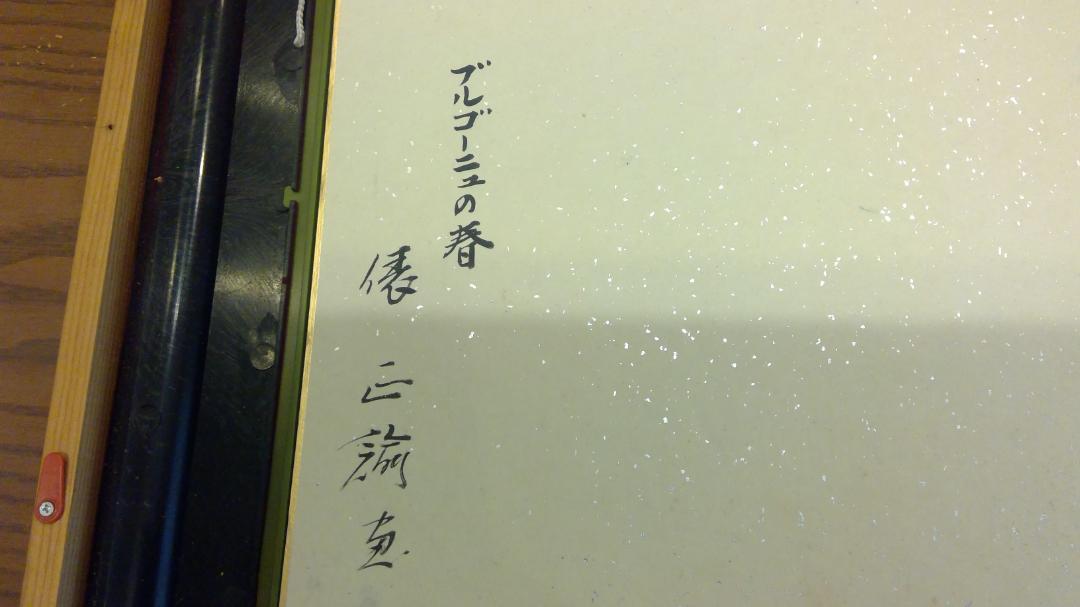 ブルゴーニュの春
俵正諭画